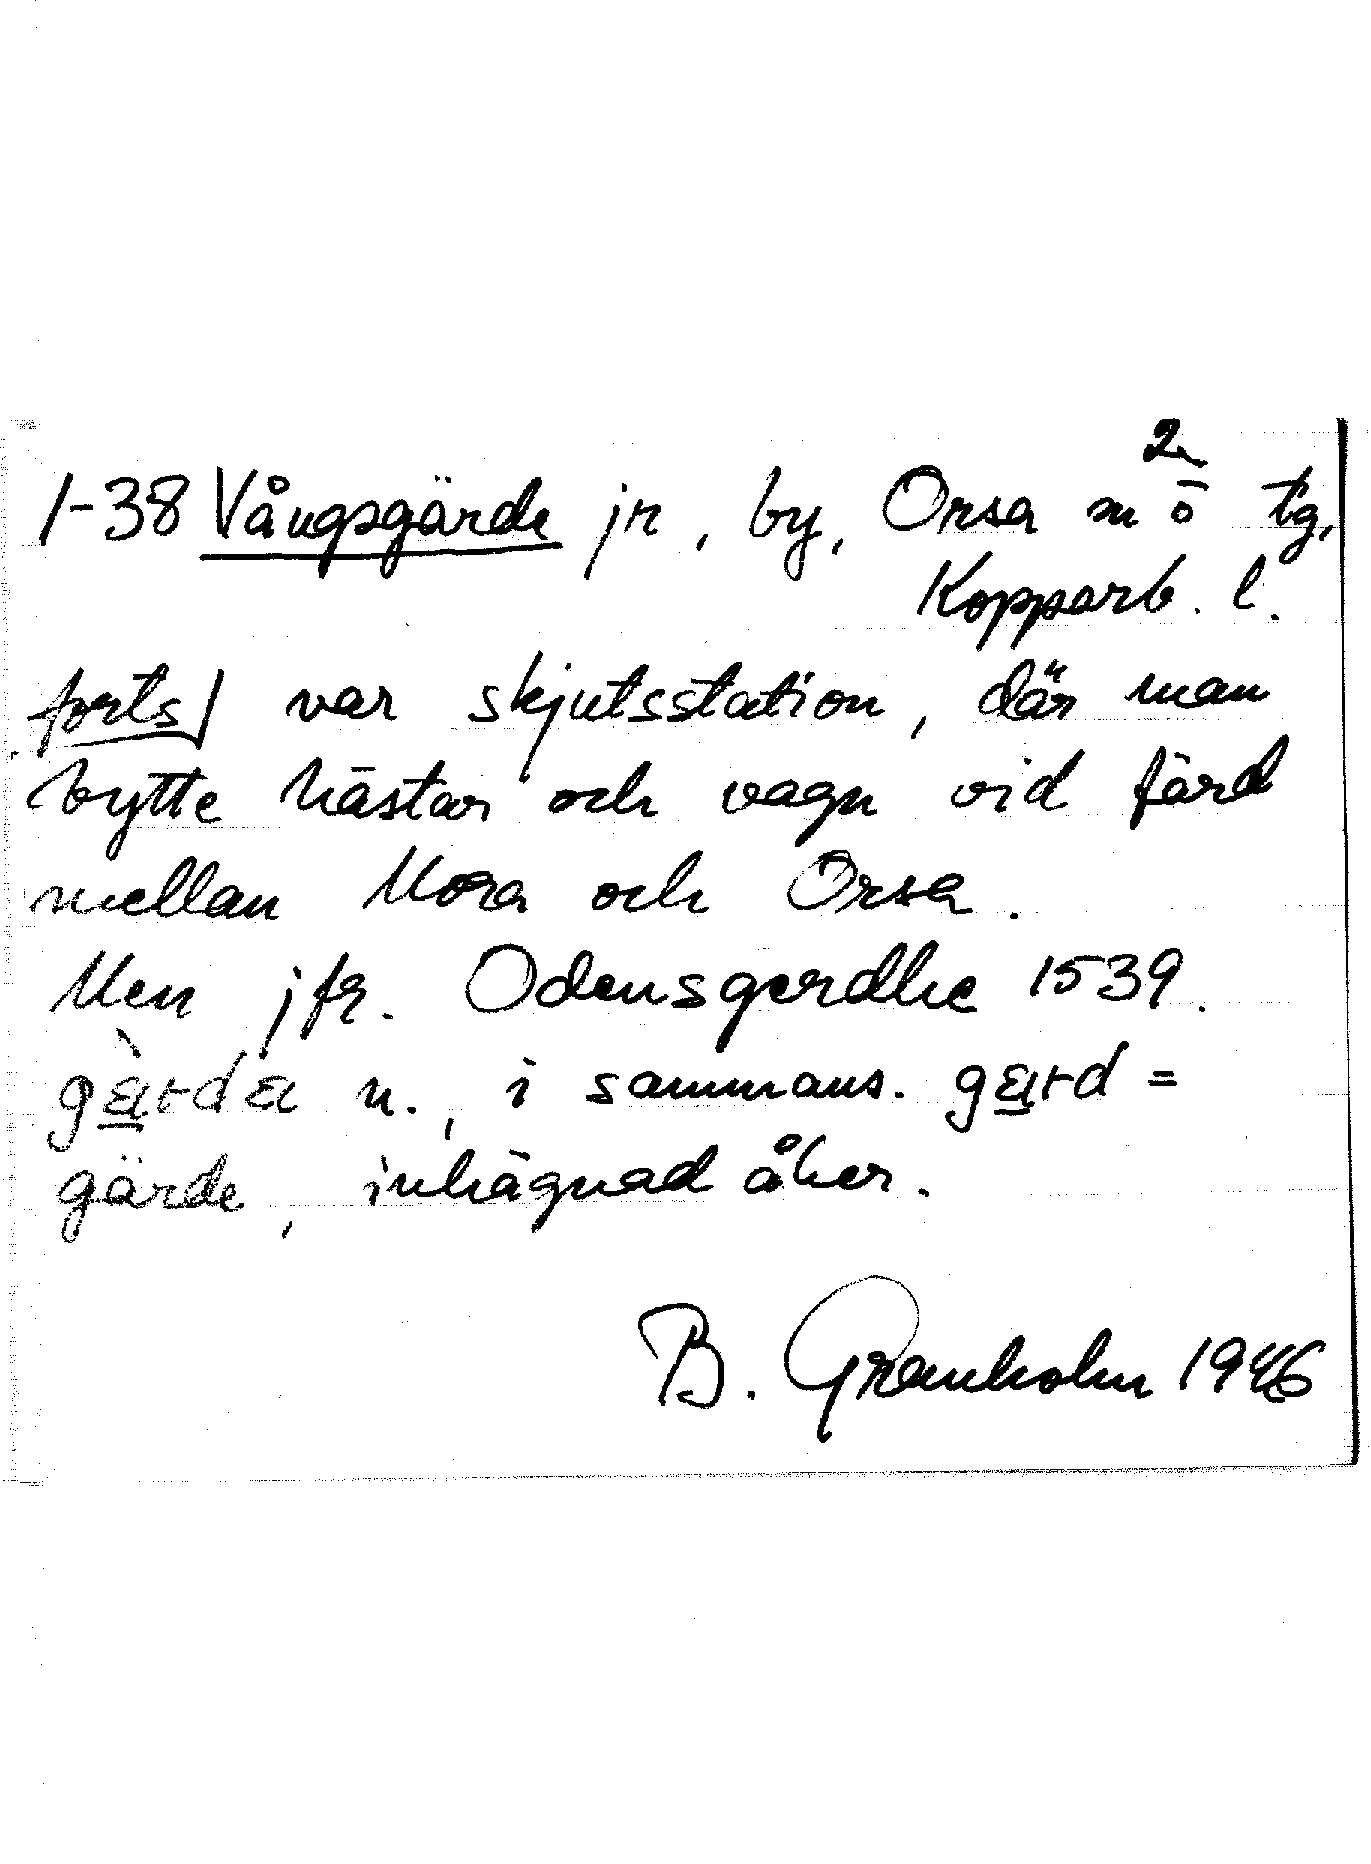 2
1-38 Vångsgärde jr, by, Orsa m ö tg,
Kopparb. l.
forts/ var skjutsstation, där man
bytte hästar och vagn vid färd
mellan Mora och Orsa.
Men jfr. Odensgerdhe 1539.
n., i sammans. =
gärde, inhägnad åker.
B. Granholm 1946